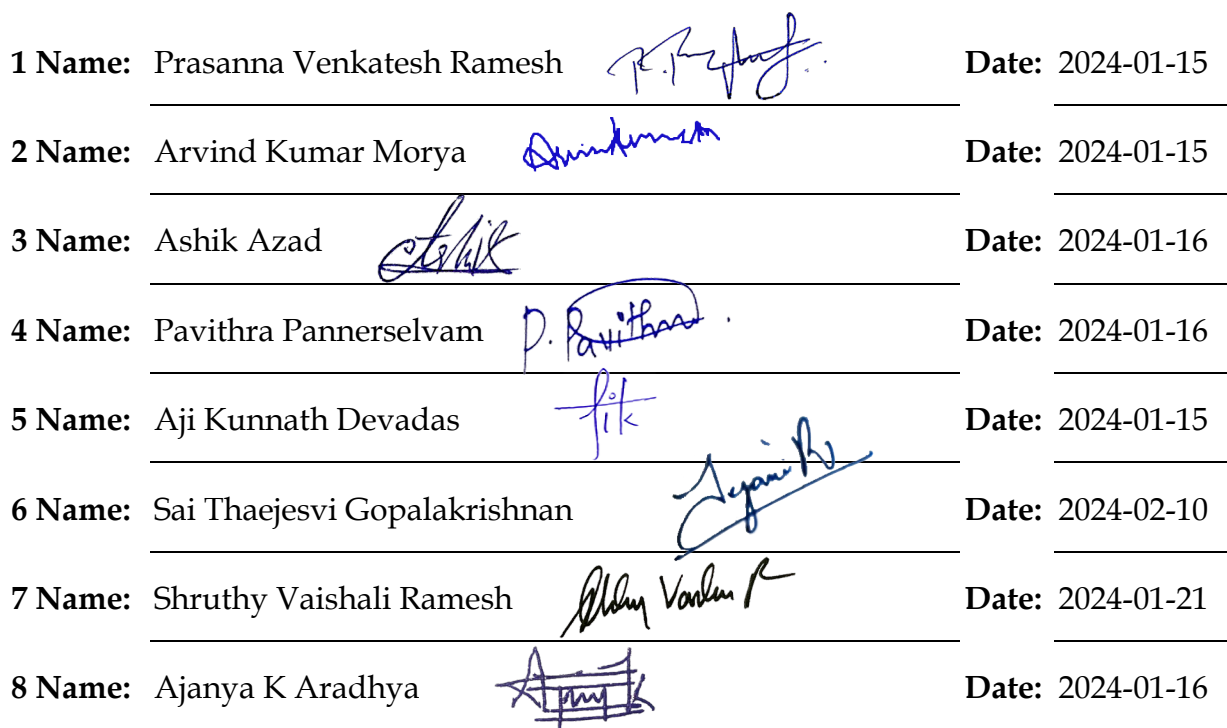 1 Name: Prasanna Venkatesh Ramesh Date: 2024-01-15
2 Name: Arvind Kumar Morya Date: 2024-01-15
3 Name: Ashik Azad Ashik Date: 2024-01-16
4 Name: Pavithra Pannerselvam P. Pavithra. Date: 2024-01-16
5 Name: Aji Kunnath Devadas Date: 2024-01-15
6 Name: Sai Thaejesvi Gopalakrishnan Date: 2024-02-10
7 Name: Shruthy Vaishali Ramesh Date: 2024-01-21
8 Name: Ajanya K Aradhya Date: 2024-01-16